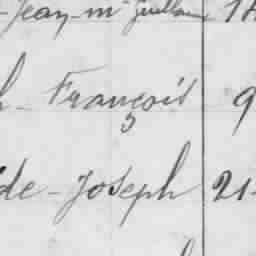 -Jean-Mie Guillaume 18
- François 9
de-Joseph 21